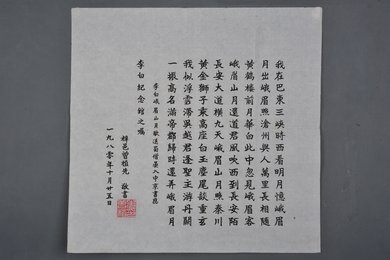 我在巴東三峽時西看明月憶峨眉
月出峨眉照滄海與人萬里長相隨
黃鶴樓前月華白此中忽見峨眉客
峨眉山月還送君風吹西到長安陌
長安大道橫九天峨眉山月照秦川
黃金獅子乘高座白玉麈尾談重玄
我似浮雲滯吳越君逢聖主游丹闕
一振高名滿帝都歸時還弄峨眉月
李白峨眉山月歌送蜀僧晏入中京書應
李白紀念館之囑
邑曾植先 敬書
一九八零年十月廿五日